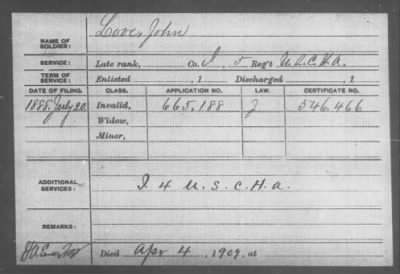 NAME OF SOLDIER: Love, John
SERVICE: Late rank, Co. I, 5 Reg't U.S.C.H.A.
TERM OF SERVICE: Enlisted , 1 Discharged , 1
DATE OF FILING. CLASS. APPLICATION NO. LAW. CERTIFICATE NO.
1888, July 20. Invalid, 665.188 546.466
Widow,
Minor,
ADDITIONAL SERVICES: I 4 U.S.C.H.A.
REMARKS:
Died Apr. 4, 1909, at